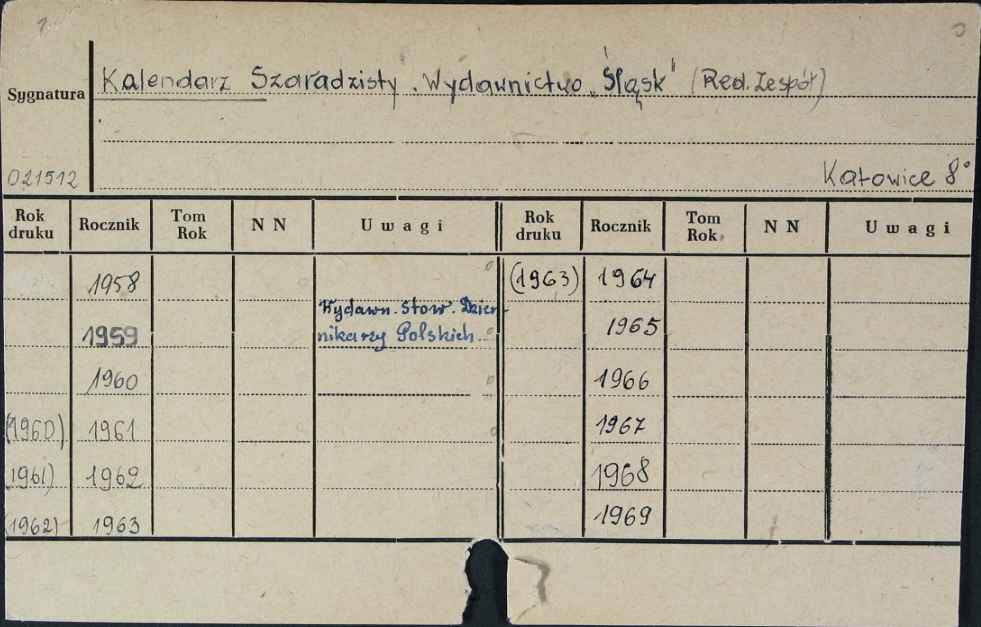 Kalendarz Szaradzisty. Wydawnictwo „Śląsk" (Red. Zespół)
Sygnatura
021512
Katowice 8°
Rok druku Rocznik Tom Rok NN Uwagi Rok druku Rocznik Tom Rok NN Uwagi
1958 (1963) 1964
1959 Wydawn. Stow. Dzien-
nikarzy Polskich 1965
1960 1966
(1960) 1961 1967
(1961) 1962 1968
(1962) 1963 1969